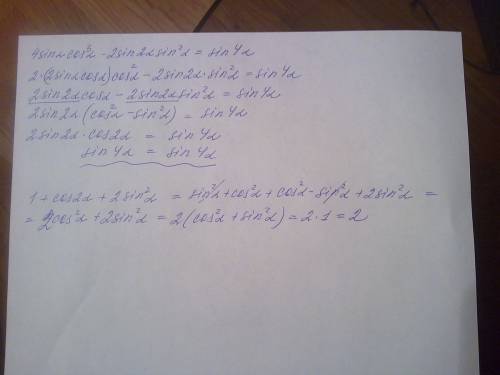 4sinαcos³α - 2sin2αsin²α = sin4α
2·(2sinαcosα)cos²α - 2sin2α·sin²α = sin4α
2sin2αcosα - 2sin2αsin²α = sin4α
2sin2α(cos²α - sin²α) = sin4α
2sin2α·cos2α = sin4α
sin4α = sin4α
1 + cos2α + 2sin²α = sin²α + cos²α + cos²α - sin²α + 2sin²α =
= 2cos²α + 2sin²α = 2(cos²α + sin²α) = 2·1 = 2